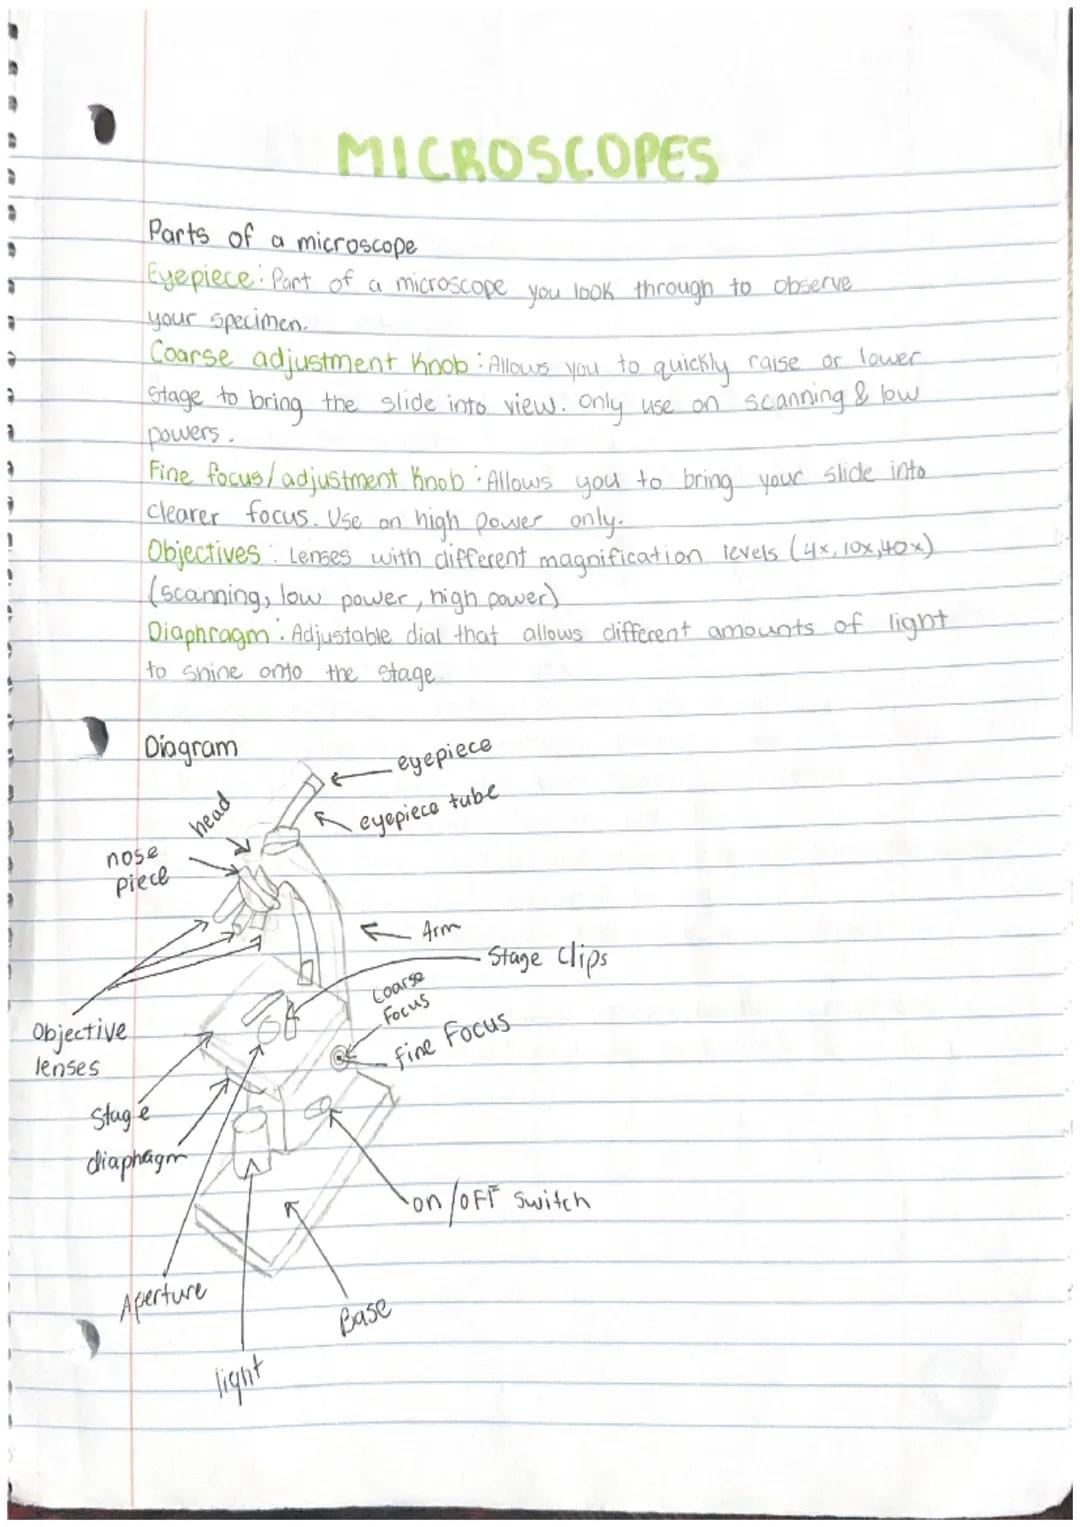 MICROSCOPES
Parts of a microscope
Eyepiece: Part of a microscope you look through to observe
your specimen.
Coarse adjustment Knob: Allows you to quickly raise or lower
stage to bring the slide into view. Only use on scanning & low
powers.
Fine focus/adjustment Knob: Allows you to bring your slide into
clearer focus. Use on high power only.
Objectives: Lenses with different magnification levels (4x, 10x, 40x)
(scanning, low power, high power)
Diaphragm: Adjustable dial that allows different amounts of light
to shine onto the stage.
Diagram
eyepiece
eyepiece tube
head
nose
piece
Arm
Stage Clips
Coarse
Focus
Fine Focus
Objective
lenses
Stage
diaphagm
on/OFF Switch
Aperture
Base
light